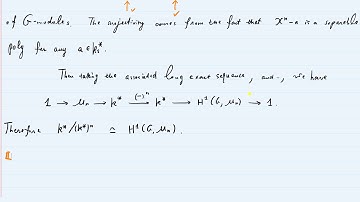 of G-modules. The surjectivity comes from the fact that xⁿ-a is a separable
poly for any a ∈ kₛ*.
Then taking the associated long exact sequence, and, we have
1 → μₙ → k* (-)ⁿ→ k* → H¹(G, μₙ) → 1.
Therefore k*/(k*)ⁿ ≃ H¹(G, μₙ).